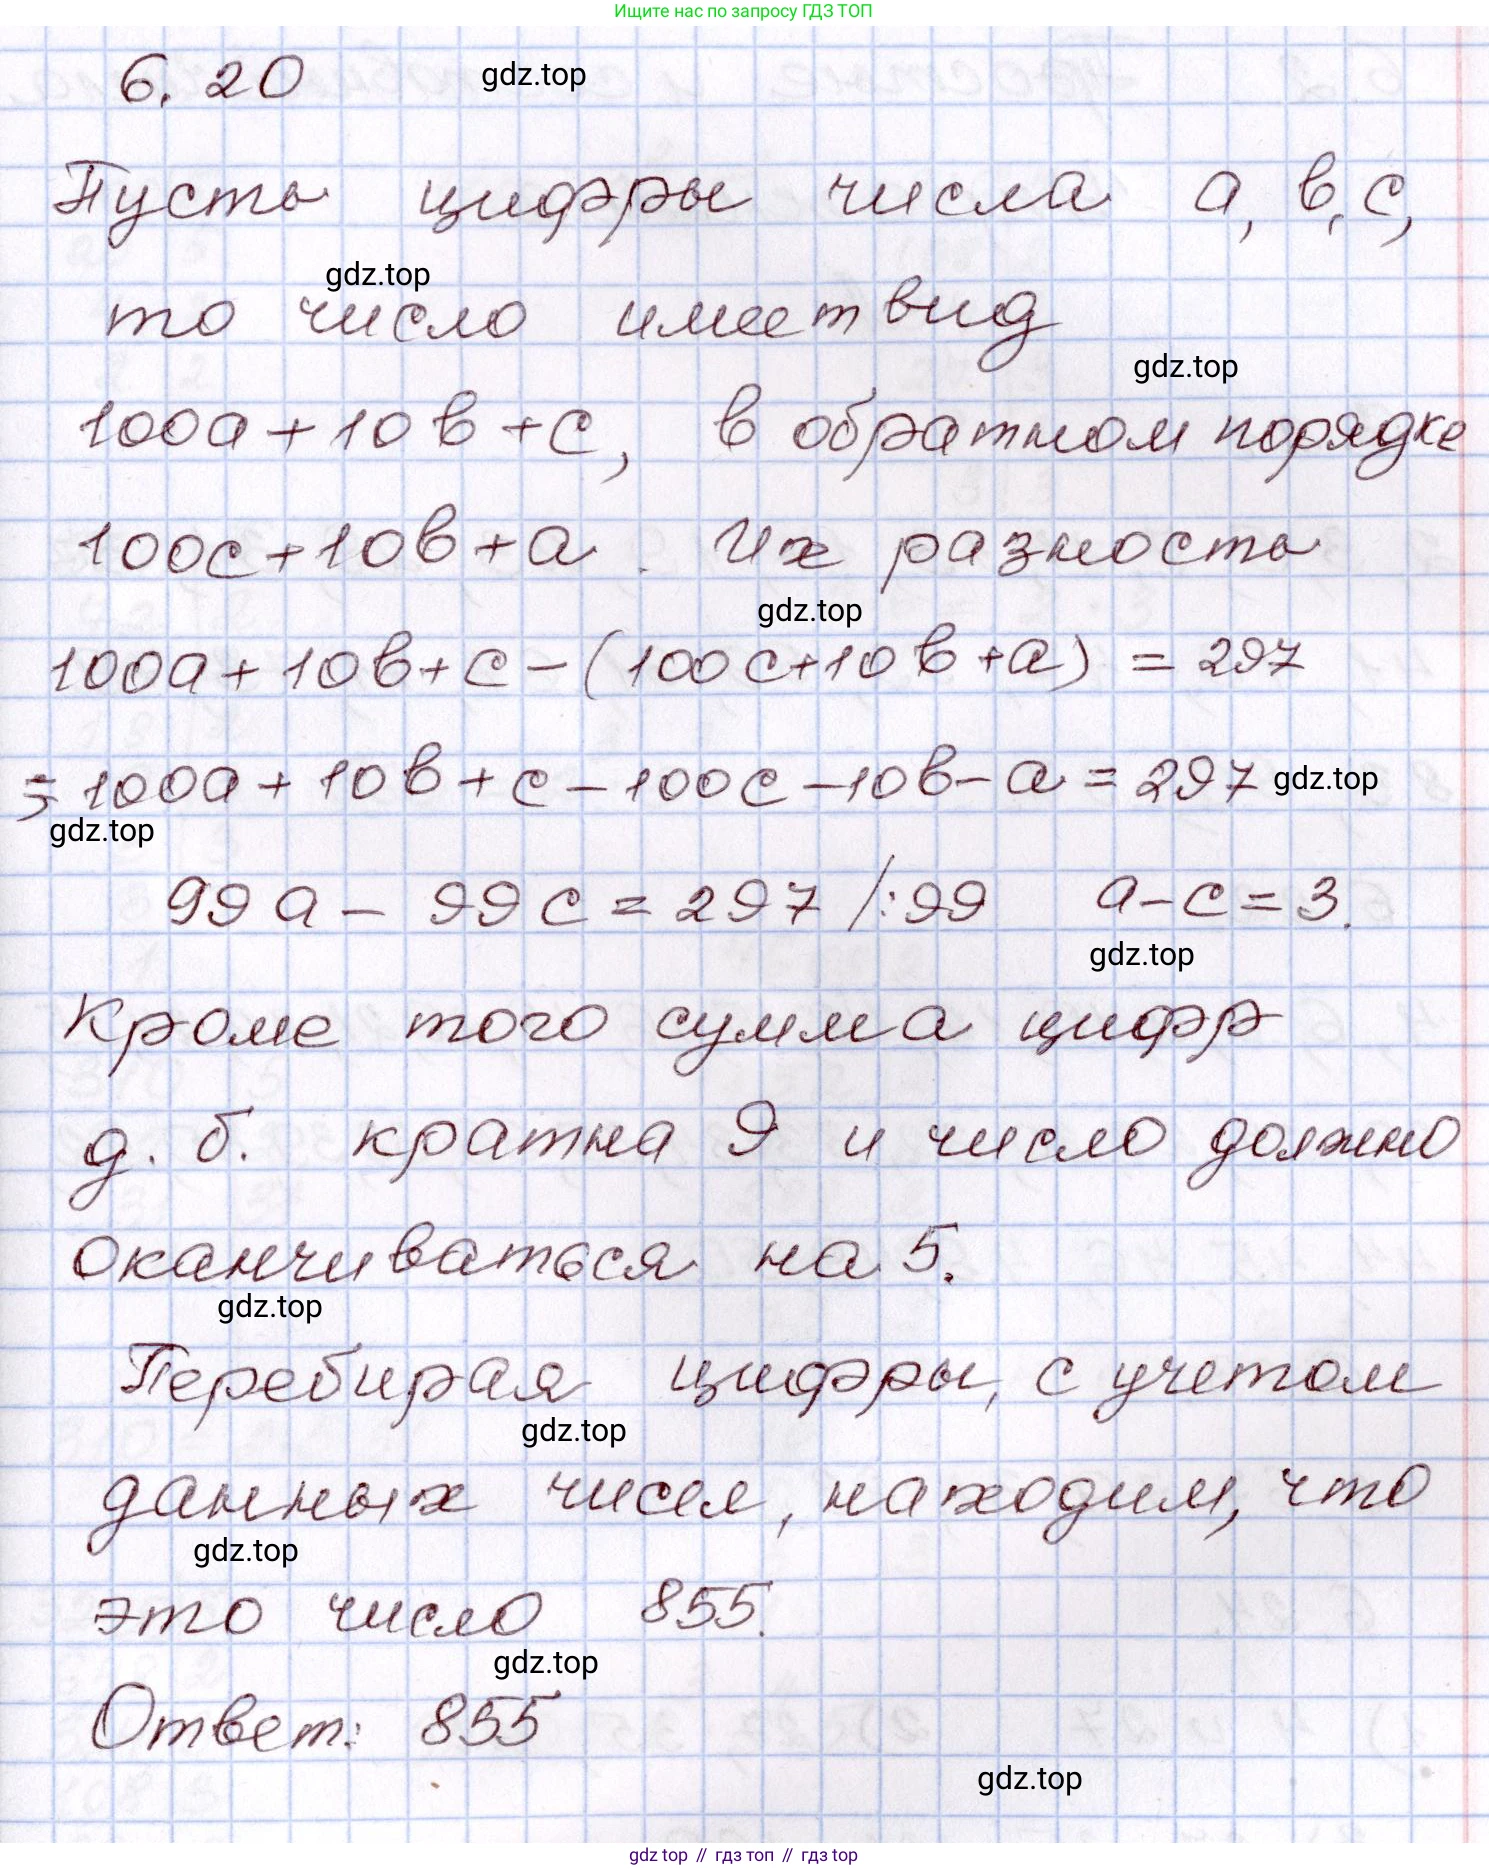 Ищите нас по запросу ГДЗ ТОП
6.20
gdz.top
Пусть цифры числа a, b, c,
gdz.top
то число имеет вид
gdz.top
100a+10b+c, в обратном порядке
100c+10b+a. Их разность
gdz.top
100a+10b+c-(100c+10b+a)=297
=100a+10b+c-100c-10b-a=297 gdz.top
gdz.top
99a-99c=297 /:99 a-c=3.
gdz.top
Кроме того сумма цифр
д.б. кратна 9 и число должно
оканчиваться на 5.
gdz.top
Перебирая цифры, с учетом
gdz.top
данных чисел, находим, что
gdz.top
это число 855.
gdz.top
Ответ: 855
gdz.top
gdz top // гдз топ // гдз top